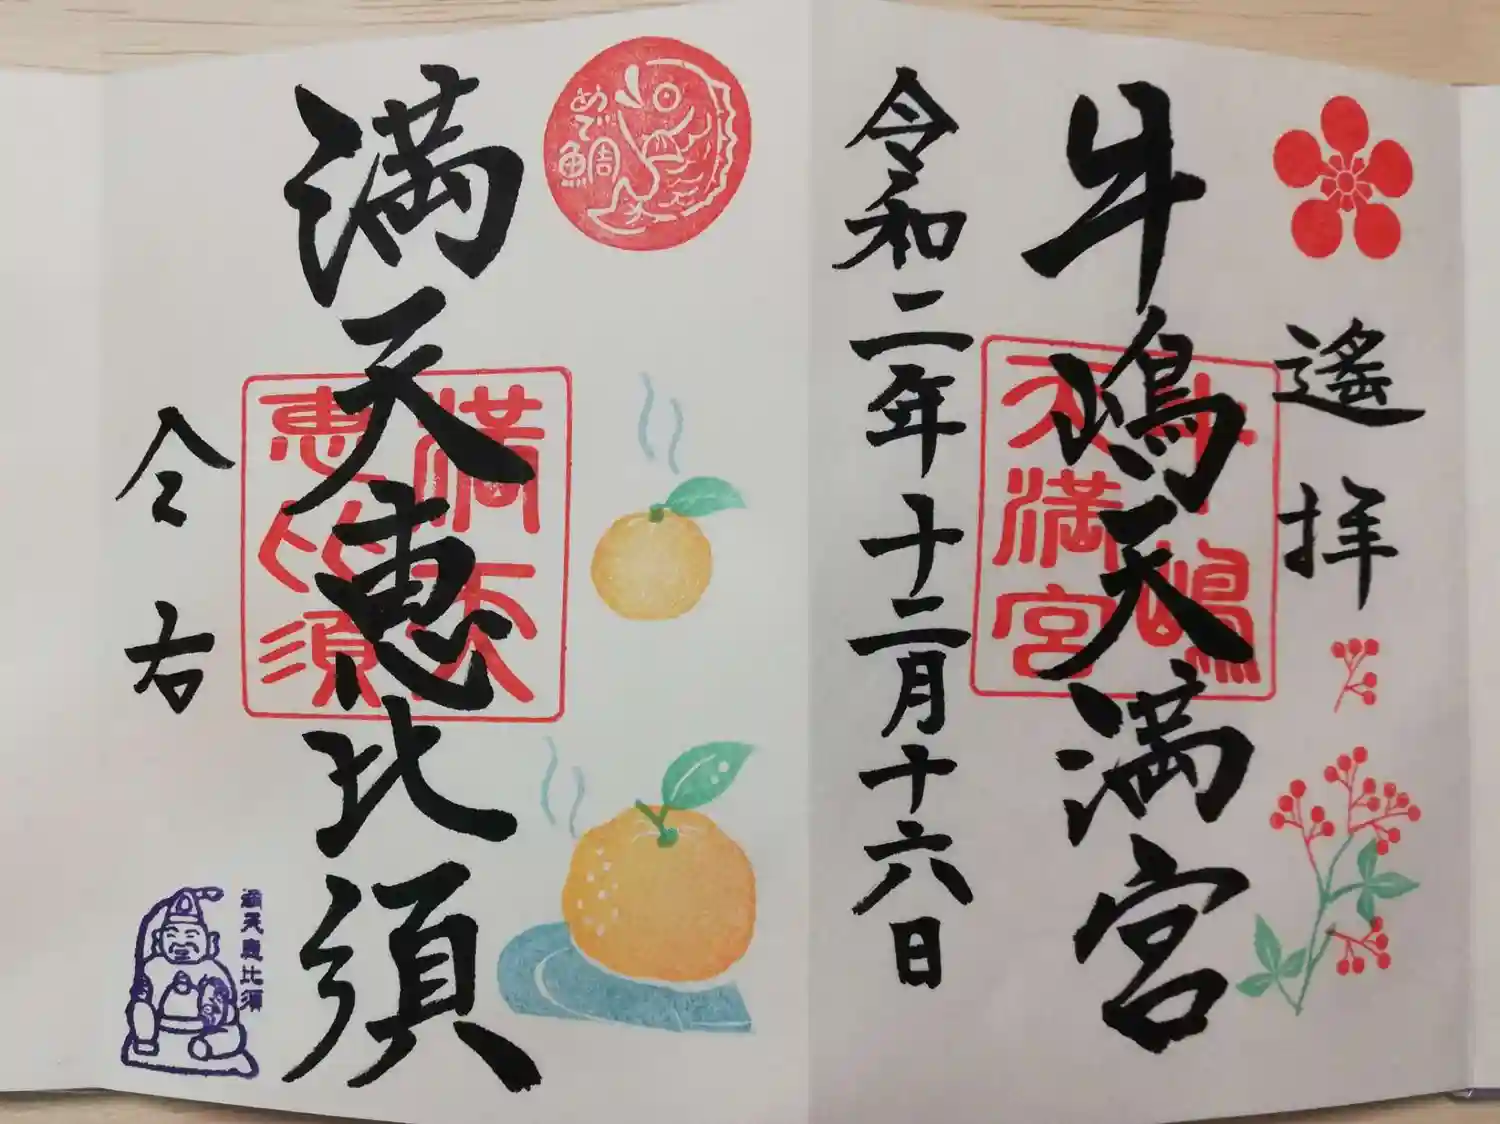 遙拝
牛嶋天満宮
牛嶋
天満宮
令和二年十二月十六日
めで鯛
満天恵比須
満天
恵比須
仝右
満天恵比須